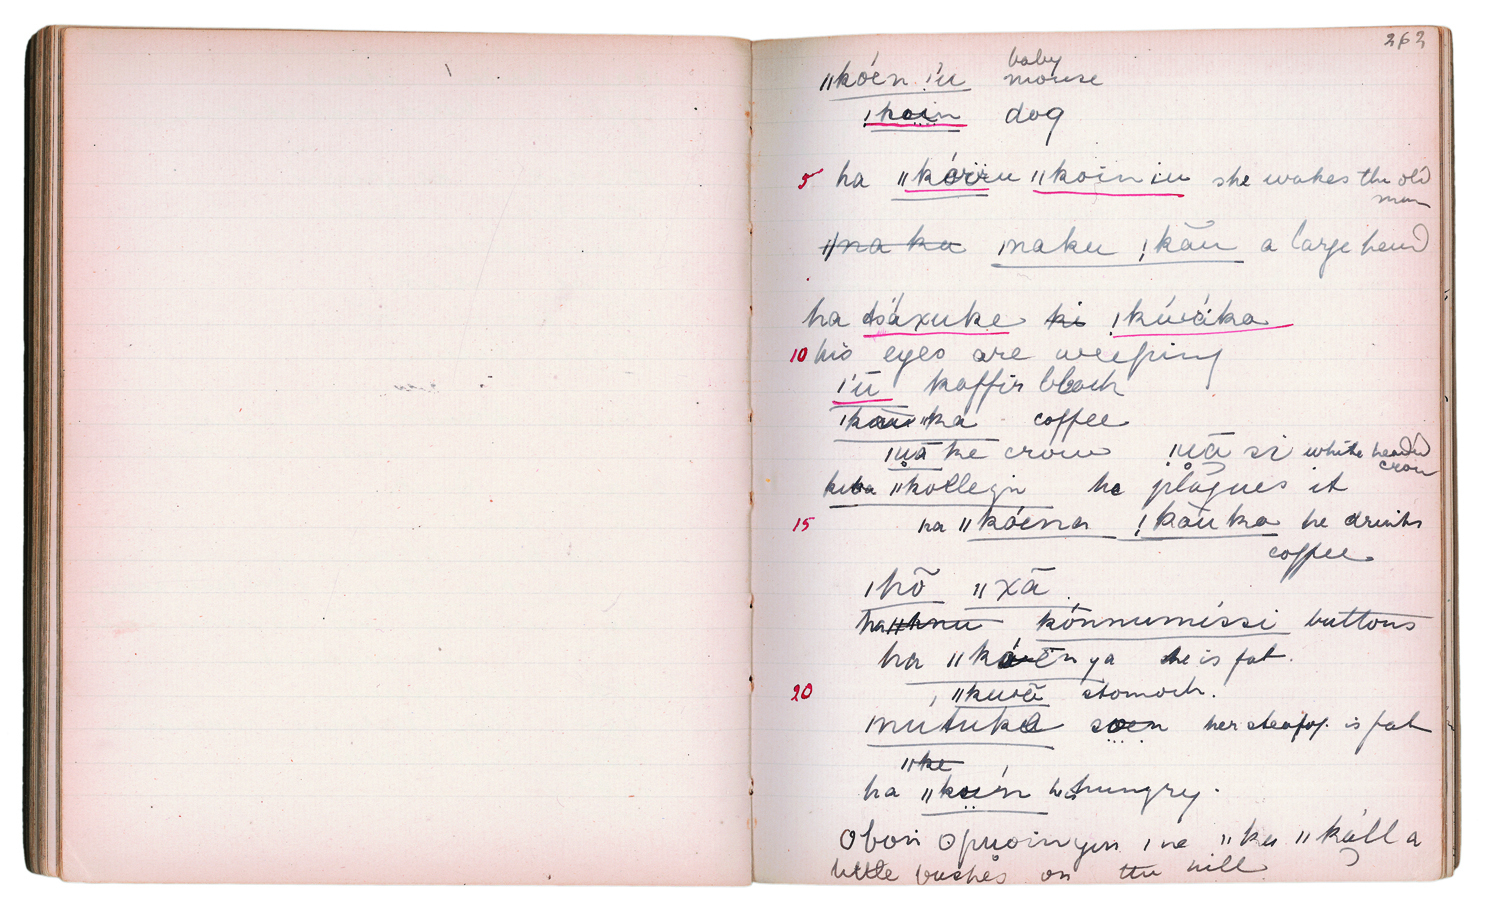 262
ǁkóen ı'u baby mouse
ǃkoin dog
5 ha ǁkórru ǁkoin iu she wakes the old man
ǁna ku ǀnaku ǃkãu a large head
ha dsáxuke ki ǃkúváka
10 his eyes are weeping
ı'ū kaffir black
ǀkauka coffee
ǀuā ke crow ǀuā si white headed crow
ǁkollegn he plagues it
15 ha ǁkóena ǃkauka he drinks
coffee
ǀhõ ǁxā
ha ǁhnu kónnumíssi buttons
ha ǁkoēnya she is fat.
20 ǁkuvā stomach.
mútuka soen her steatop. is fat
ǁke
ha ǁkuín he is hungry.
Obon opuoinyin ǀne ǁku ǁkálla
little bushes on the hill